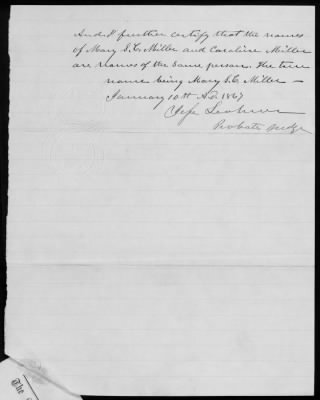 And I further certify that the names
of Mary S.C. Miller and Caroline Miller
are names of the same person. The true
name being Mary S.C. Miller —
January 10th A.D. 1867
Probate Judge
The